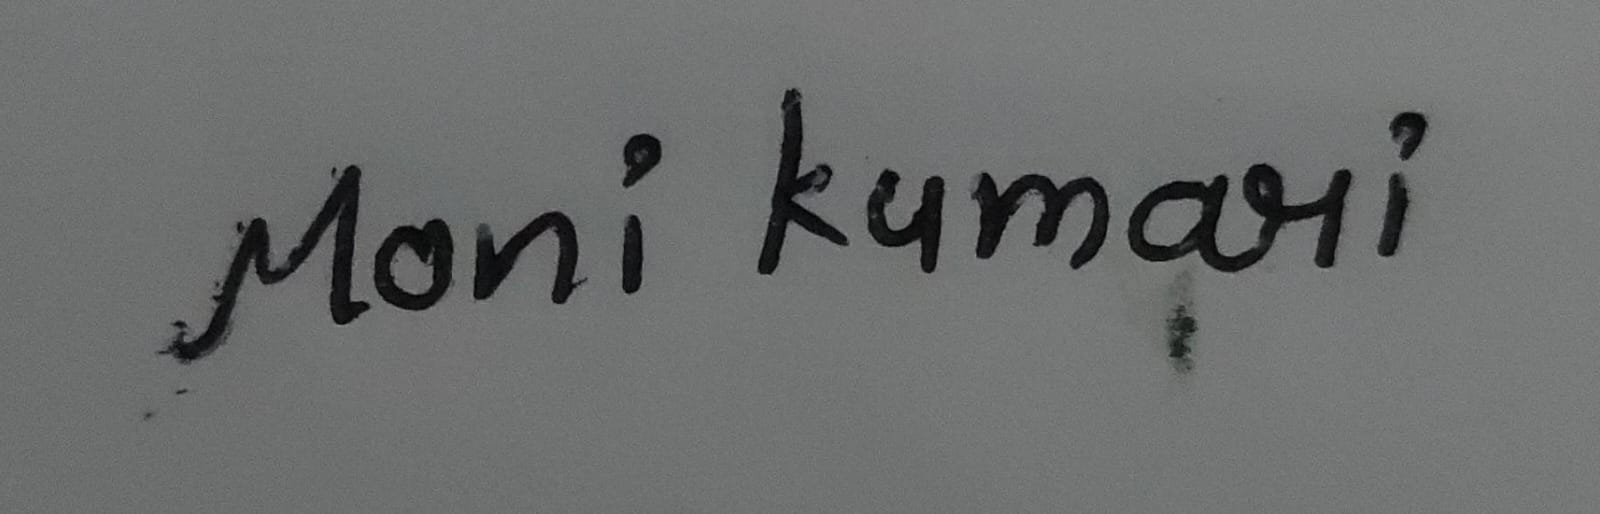 Moni kumari